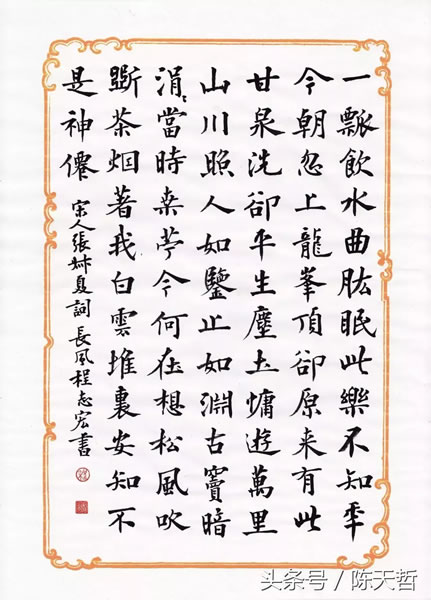 一瓢飲水曲肱眠此樂不知年
今朝忽上龍峯頂卻原来有此
甘泉洗卻平生塵土慵遊萬里
山川照人如鑒止如淵古竇暗
涓〻當時桒苧今何在想松風吹
斷茶烟著我白雲堆裏安知不
是神僊
宋人張叔夏詞長風程志宏書
头条号 / 陈天哲